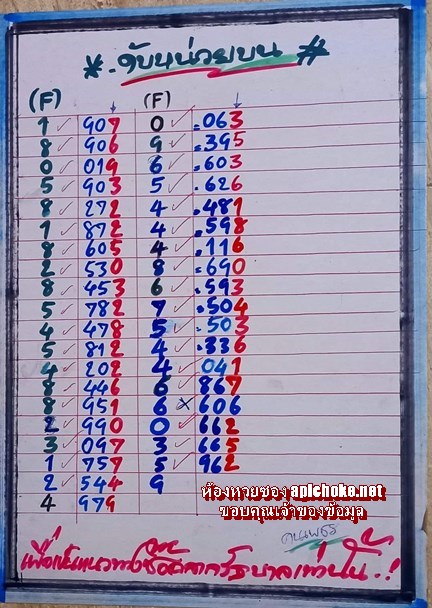 * . ดับหน่วยบน #
(F) (F)
1 ✓ 907 0 ✓ .063
8 ✓ 906 9 ✓ .395
0 ✓ 019 6 ✓ .603
5 ✓ 903 5 ✓ .626
8 ✓ 272 4 ✓ .481
1 ✓ 872 4 ✓ .598
8 ✓ 605 4 ✓ .116
2 ✓ 530 8 ✓ .690
8 ✓ 453 6 ✓ .593
5 ✓ 782 7 ✓ .504
4 ✓ 478 5 ✓ .503
5 ✓ 812 4 ✓ .336
4 ✓ 202 4 ✓ 041
8 ✓ 446 6 ✓ 867
8 ✓ 951 6 × 606
2 ✓ 990 0 ✓ 662
3 ✓ 097 3 ✓ 665
1 ✓ 757 5 ✓ 962
2 ✓ 544 9
4 979
ห้องหวยซอง apichoke.net
ขอบคุณเจ้าของข้อมูล
คนเพชร
เพื่อเป็นแนวทางซื้อสลากรัฐบาลเท่านั้น..!